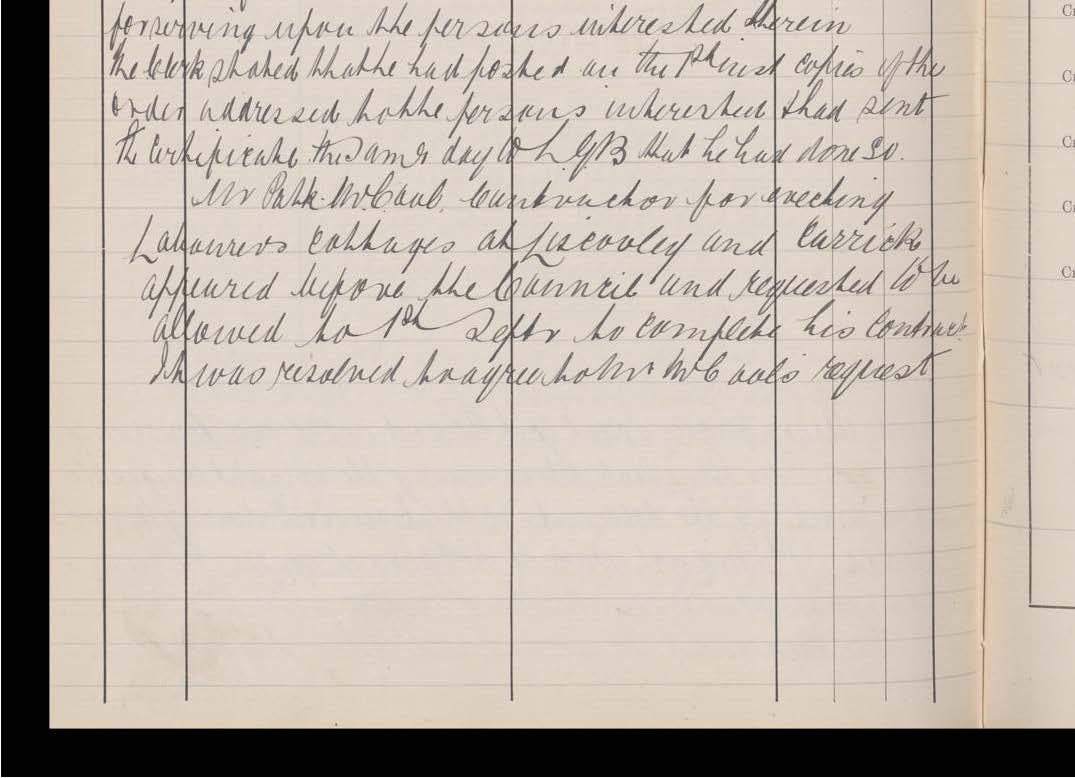 for serving upon the persons interested therein
the Clerk stated that he had posted on the 1st inst copies of the
order addressed to the persons interested & had sent
the Certificate the same day to L G B that he had done so.
Mr Patk. McCaul. Contractor for erecting
Labourers cottages at Liscooley and Carrick
appeared before the Council and requested to be
allowed to 1st Septr to complete his Contract.
It was resolved to agree to Mr McCaul's request